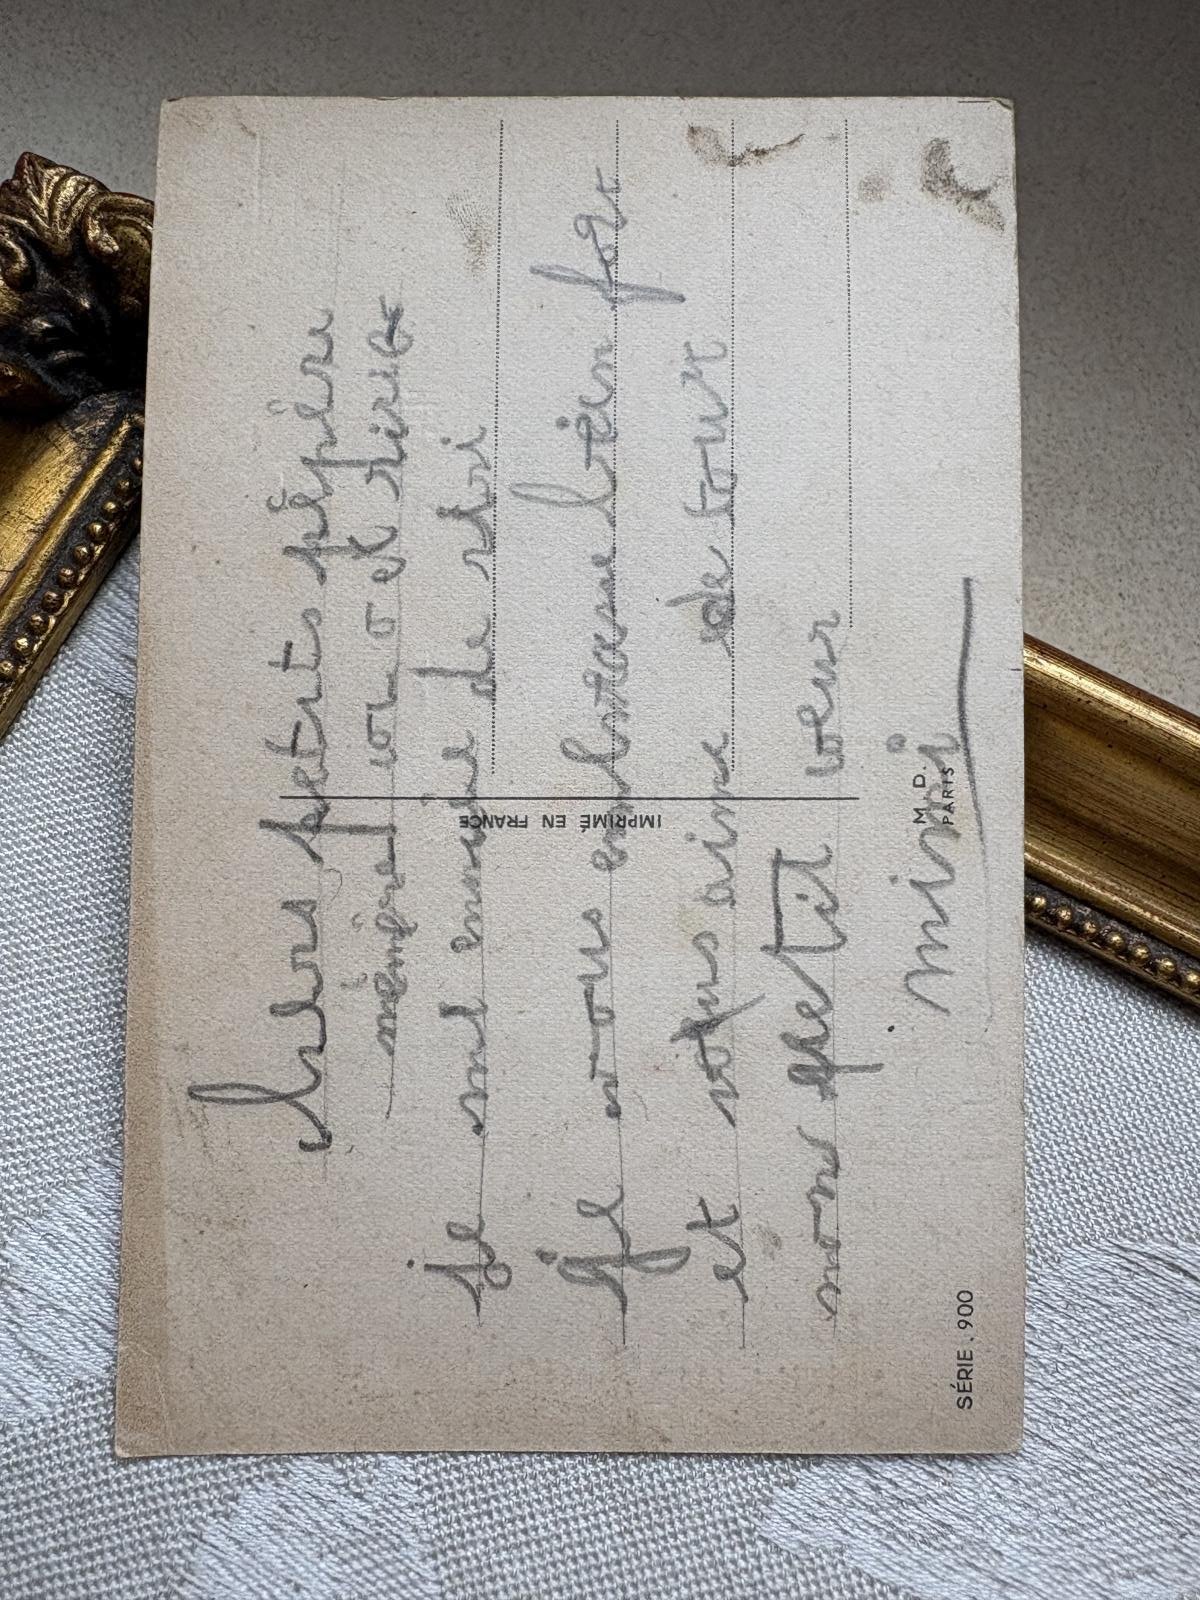 chers petits pépère
mémère von o et
je vul envoie de
Je vous embrasse bien for
et vous aime de tour
mon petit ceur
mimi
IMPRIMÉ EN FRANCE
M. D.
PARIS
SÉRIE . 900